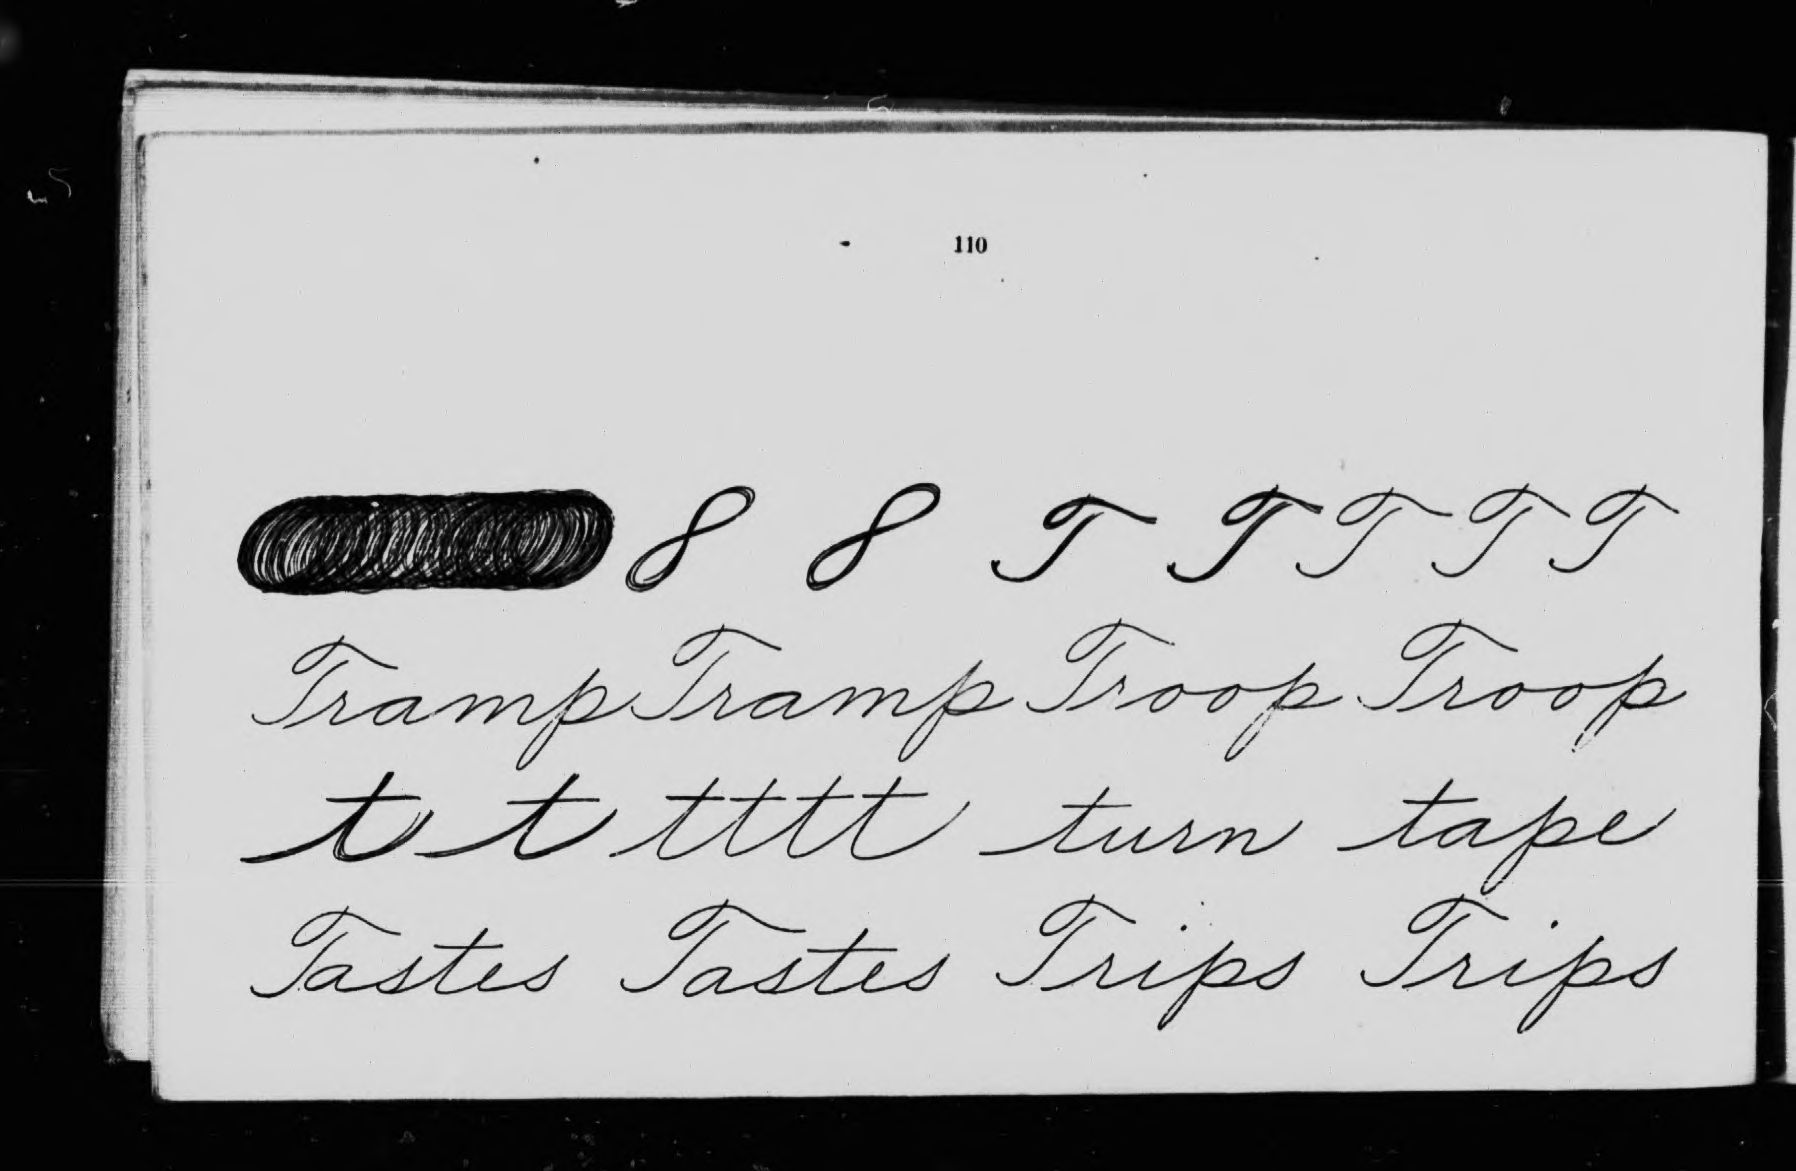 110
8 8 T T T T T
Tramp Tramp Troop Troop
t t tttt turn tape
Tastes Tastes Trips Trips